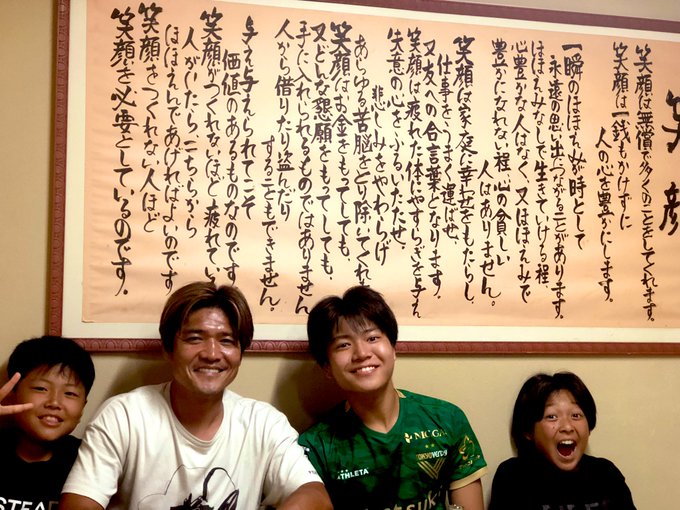 笑彦
笑顔は無償で多くのことをしてくれます。
笑顔は一銭もかけずに
人の心を豊かにします。
一瞬のほほえみが時として
永遠の思い出につながることがあります。
ほほえみなしで生きていける程、
心豊かな人はなく、又ほほえみで
豊かになれない程、心の貧しい
人はありません。
笑顔は家庭に幸せをもたらし、
仕事をうまく運ばせ、
又友への合言葉となります。
笑顔は疲れた体にやすらぎを与え
失意の心をふるいたたせ、
悲しみをやわらげ
あらゆる苦脳をとり除いてくれ
笑顔はお金をもってしても、
又どんな懇願をもってしても、
手に入れられるものではありません
人から借りたり盗んだり
することもできません。
与え与えられてこそ
価値のあるものなのです
笑顔がつくれないほど疲れてい
人がいたら、こちらから
ほほえんであげればよいのです
笑顔をつくれない人ほど
笑顔を必要としているのです。
STEA
MCC
ATHLETA
TOKYO VERDY